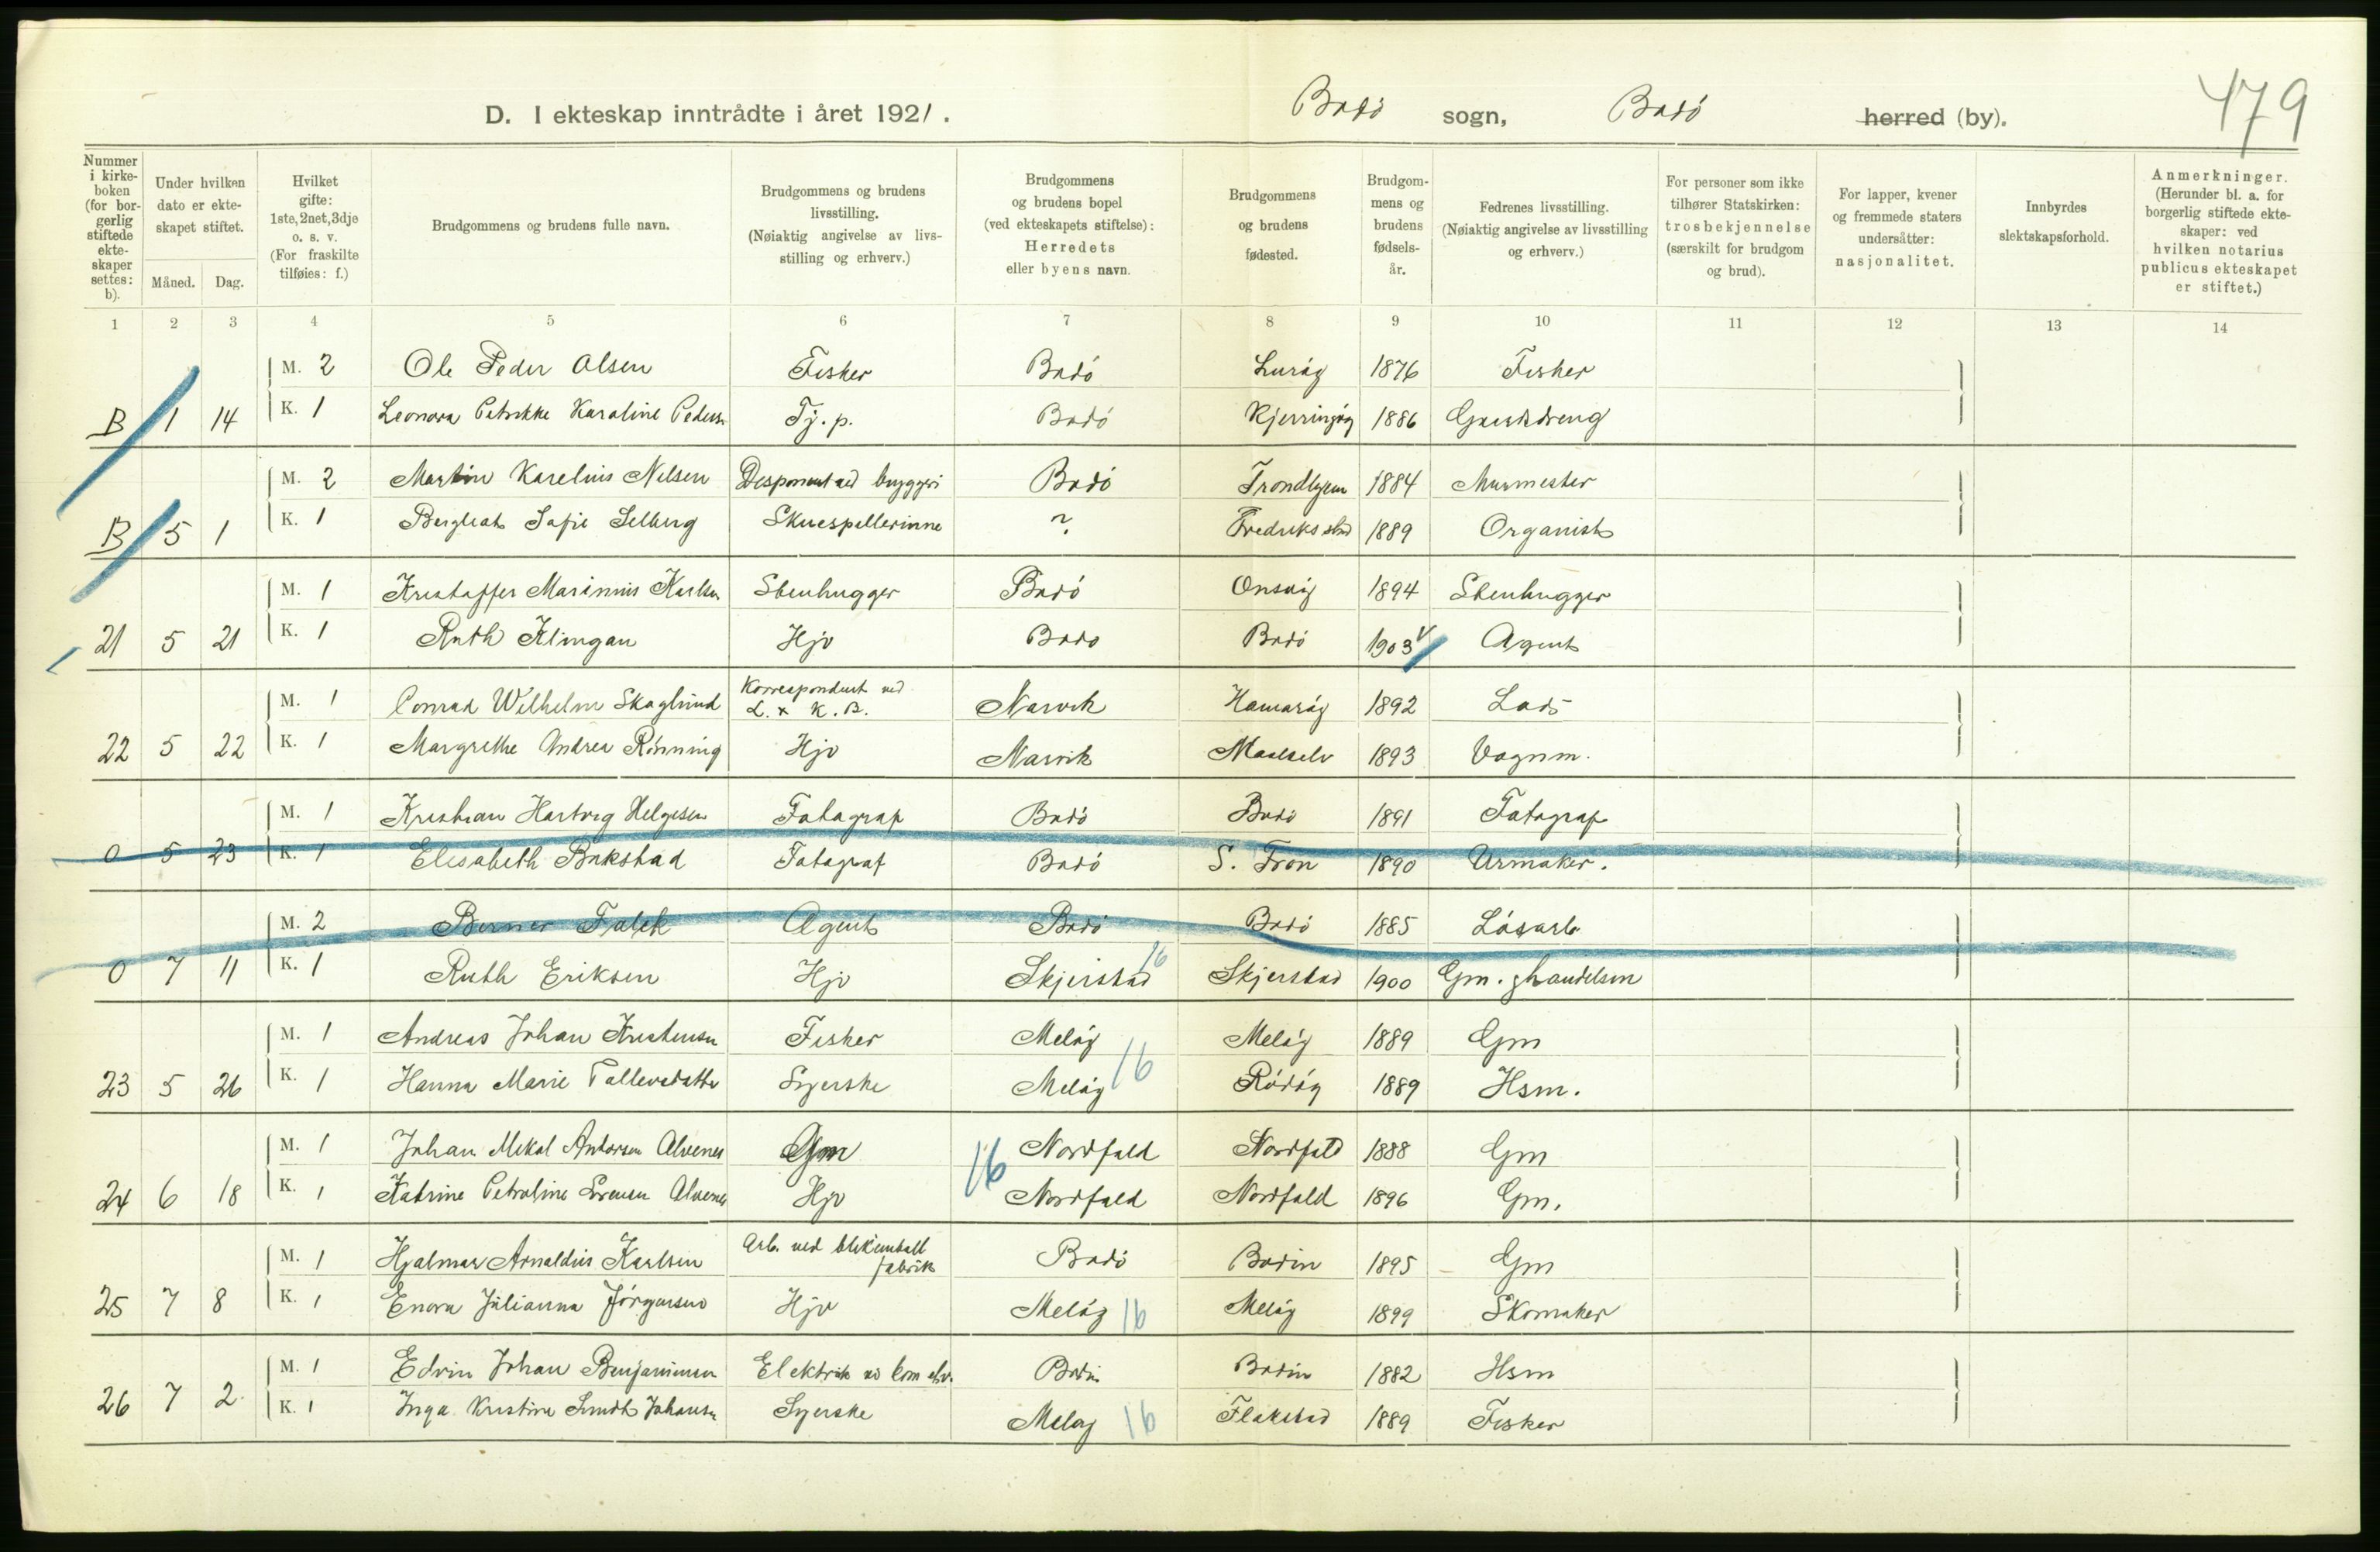 479
D. I ekteskap inntrådte i året 1921. Bodö sogn, Bodö herred (by).
Nummer i kirke-boken (for bor-gerlig stiftede ekte-skaper settes: b).
Under hvilken dato er ekte-skapet stiftet.
Måned. Dag.
Hvilket gifte: 1ste, 2net, 3dje o. s. v. (For fraskilte tilføies: f.)
Brudgommens og brudens fulle navn.
Brudgommens og brudens livsstilling. (Nøiaktig angivelse av livs-stilling og erhverv.)
Brudgommens og brudens bopel (ved ekteskapets stiftelse): Herredets eller byens navn.
Brudgommens og brudens fødested.
Brudgom-mens og brudens fødsels-år.
Fedrenes livsstilling. (Nøiaktig angivelse av livsstilling og erhverv.)
For personer som ikke tilhører Statskirken: trosbekjennelse (særskilt for brudgom og brud).
For lapper, kvener og fremmede staters undersåtter: nasjonalitet.
Innbyrdes slektskapsforhold.
Anmerkninger. (Herunder bl. a. for borgerlig stiftede ekte-skaper: ved hvilken notarius publicus ekteskapet er stiftet.)
1 2 3 4 5 6 7 8 9 10 11 12 13 14
M. 2 Ole Peder Olsen Fisker Bodö Luröy 1876 Fisker
B 1 14 K. 1 Leonora Petrikke Karoline Peders. Tj. p. Bodö Kjerringöy 1886 Gaardsdreng
M. 2 Martin Karelius Nilsen Disponent ved bryggeri Bodö Trondhjem 1884 Murmester
B 5 1 K. 1 Bergliot Sofie Selberg Skuespillerinne ? Fredriksstad 1889 Organist
M. 1 Kristoffer Marinius Karlsen Stenhugger Bodö Onsöy 1894 Stenhugger
21 5 21 K. 1 Ruth Klingan Hjv Bodo Bodö 1903 Agent
M. 1 Conrad Wilhelm Skoglund Korrespondent ved L. x K. B. Narvik Hamaröy 1892 Lods
22 5 22 K. 1 Margrethe Andrea Rönning Hjv Narvik Maalselv 1893 Vognm.
M. 1 Kristian Hartvig Helgesen Fotograf Bodö Bodö 1891 Fotograf
0 5 23 K. 1 Elisabeth Bakstad Fotograf Bodö S. Fron 1890 Urmaker.
M. 2 Berner Falck Agent Bodö Bodö 1885 Lösarb
0 7 11 K. 1 Ruth Eriksen Hjv Skjerstad 16 Skjerstad 1900 Gm. & handelsm
M. 1 Andreas Johan Kristensen Fisker Melöy Melöy 1889 Gm
23 5 26 K. 1 Hanna Marie Tollevsdatter Syerske Melöy 16 Rödöy 1889 Hsm.
M. 1 Johan Mekal Antonsen Alvenes Gm Nordfold Nordfold 1888 Gm
24 6 18 K. 1 Katrine Petroline Sörensen Alvenes Hjv 16 Nordfold Nordfold 1896 Gm.
M. 1 Hjalmar Arnaldius Karlsen Arb. ved blikemball fabrik Bodö Bodin 1895 Gm
25 7 8 K. 1 Enora Julianna Jörgensen Hjv Melöy 16 Melöy 1899 Skomaker
M. 1 Edvin Johan Benjaminsen Elektrik ved kom elv. Bodin Bodin 1882 Hsm
26 7 2 K. 1 Inga Kristine Smidt Johansen Syerske Melöy 16 Flakstad 1889 Fisker